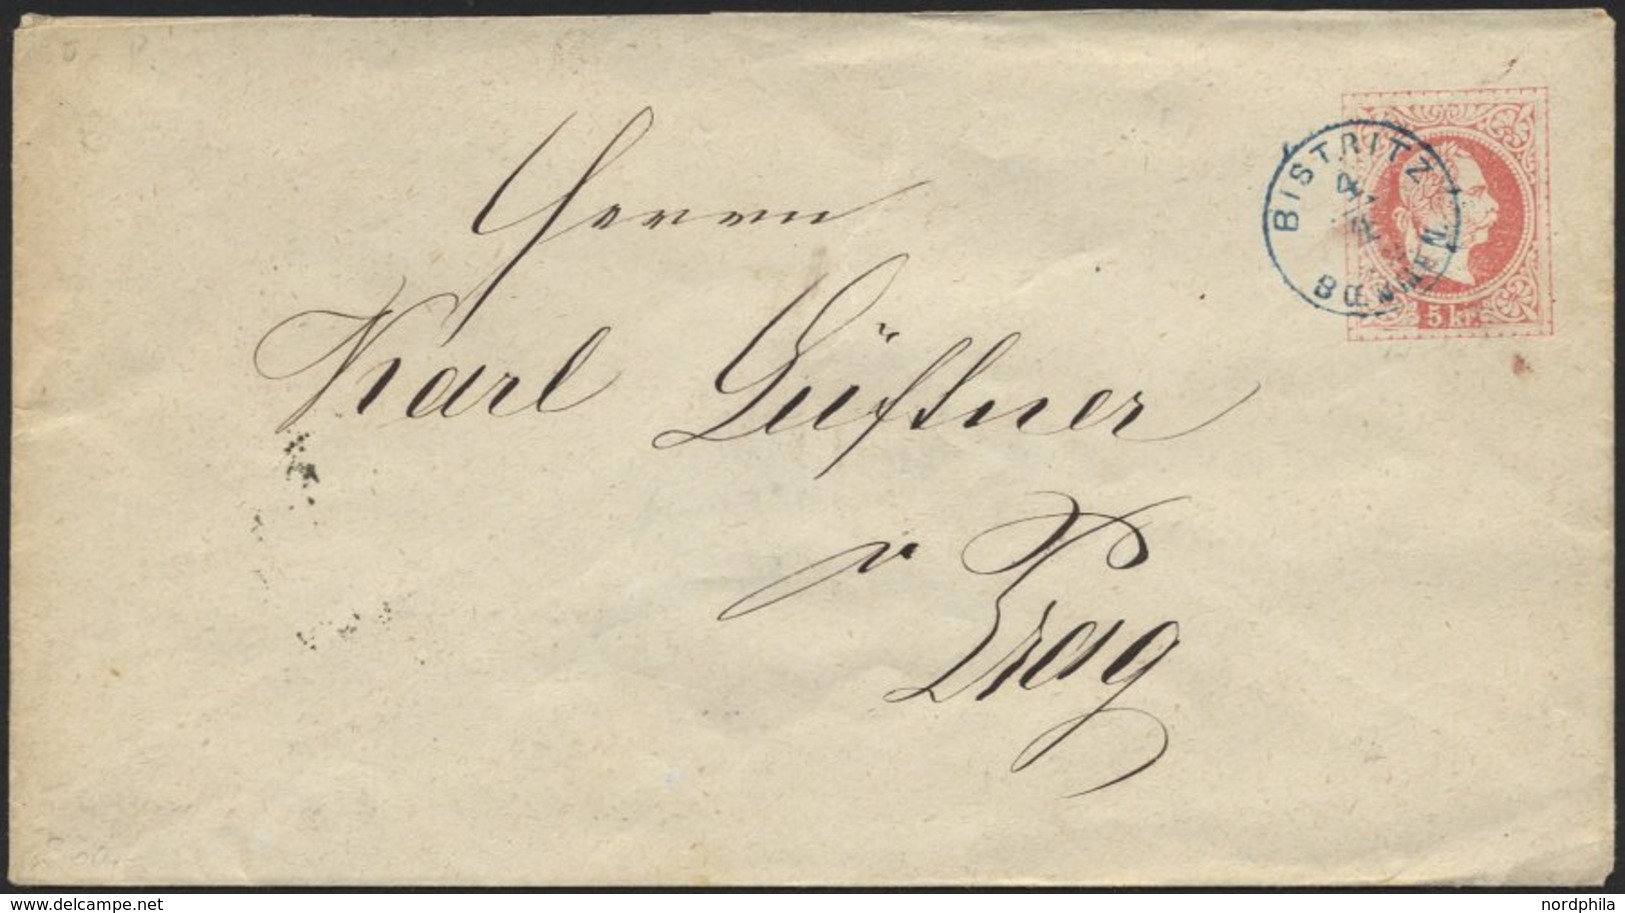 BISTRITZ
BŒHMEN.
5 kr.
Herrn
Karl Lüftner
Prag
www.delcampe.net
nordphila